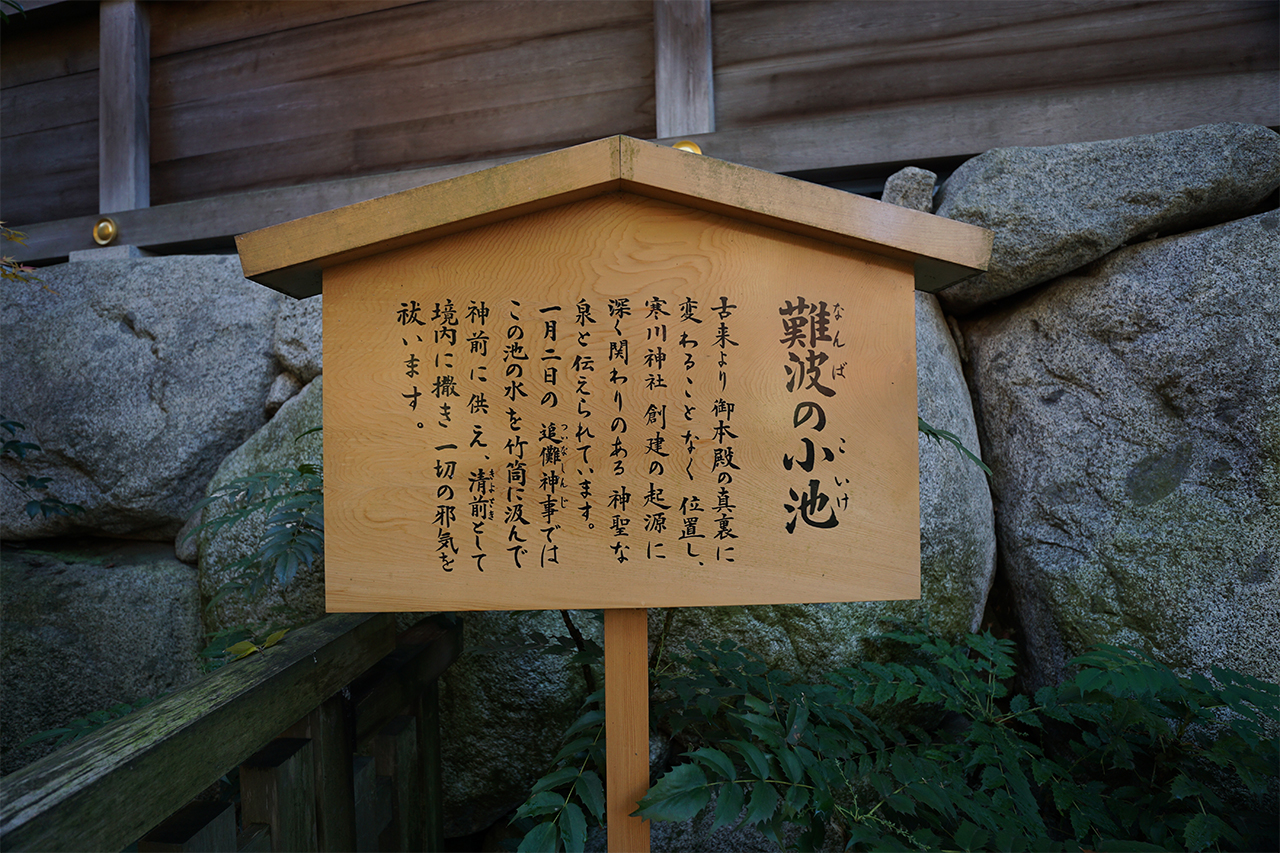 難波の小池
なんば こいけ
古来より御本殿の真裏に
変わることなく位置し、
寒川神社創建の起源に
深く関わりのある神聖な
泉と伝えられています。
一月二日の追儺神事では
ついなしんじ
この池の水を竹筒に汲んで
神前に供え、清前として
きよさき
境内に撒き一切の邪気を
祓います。